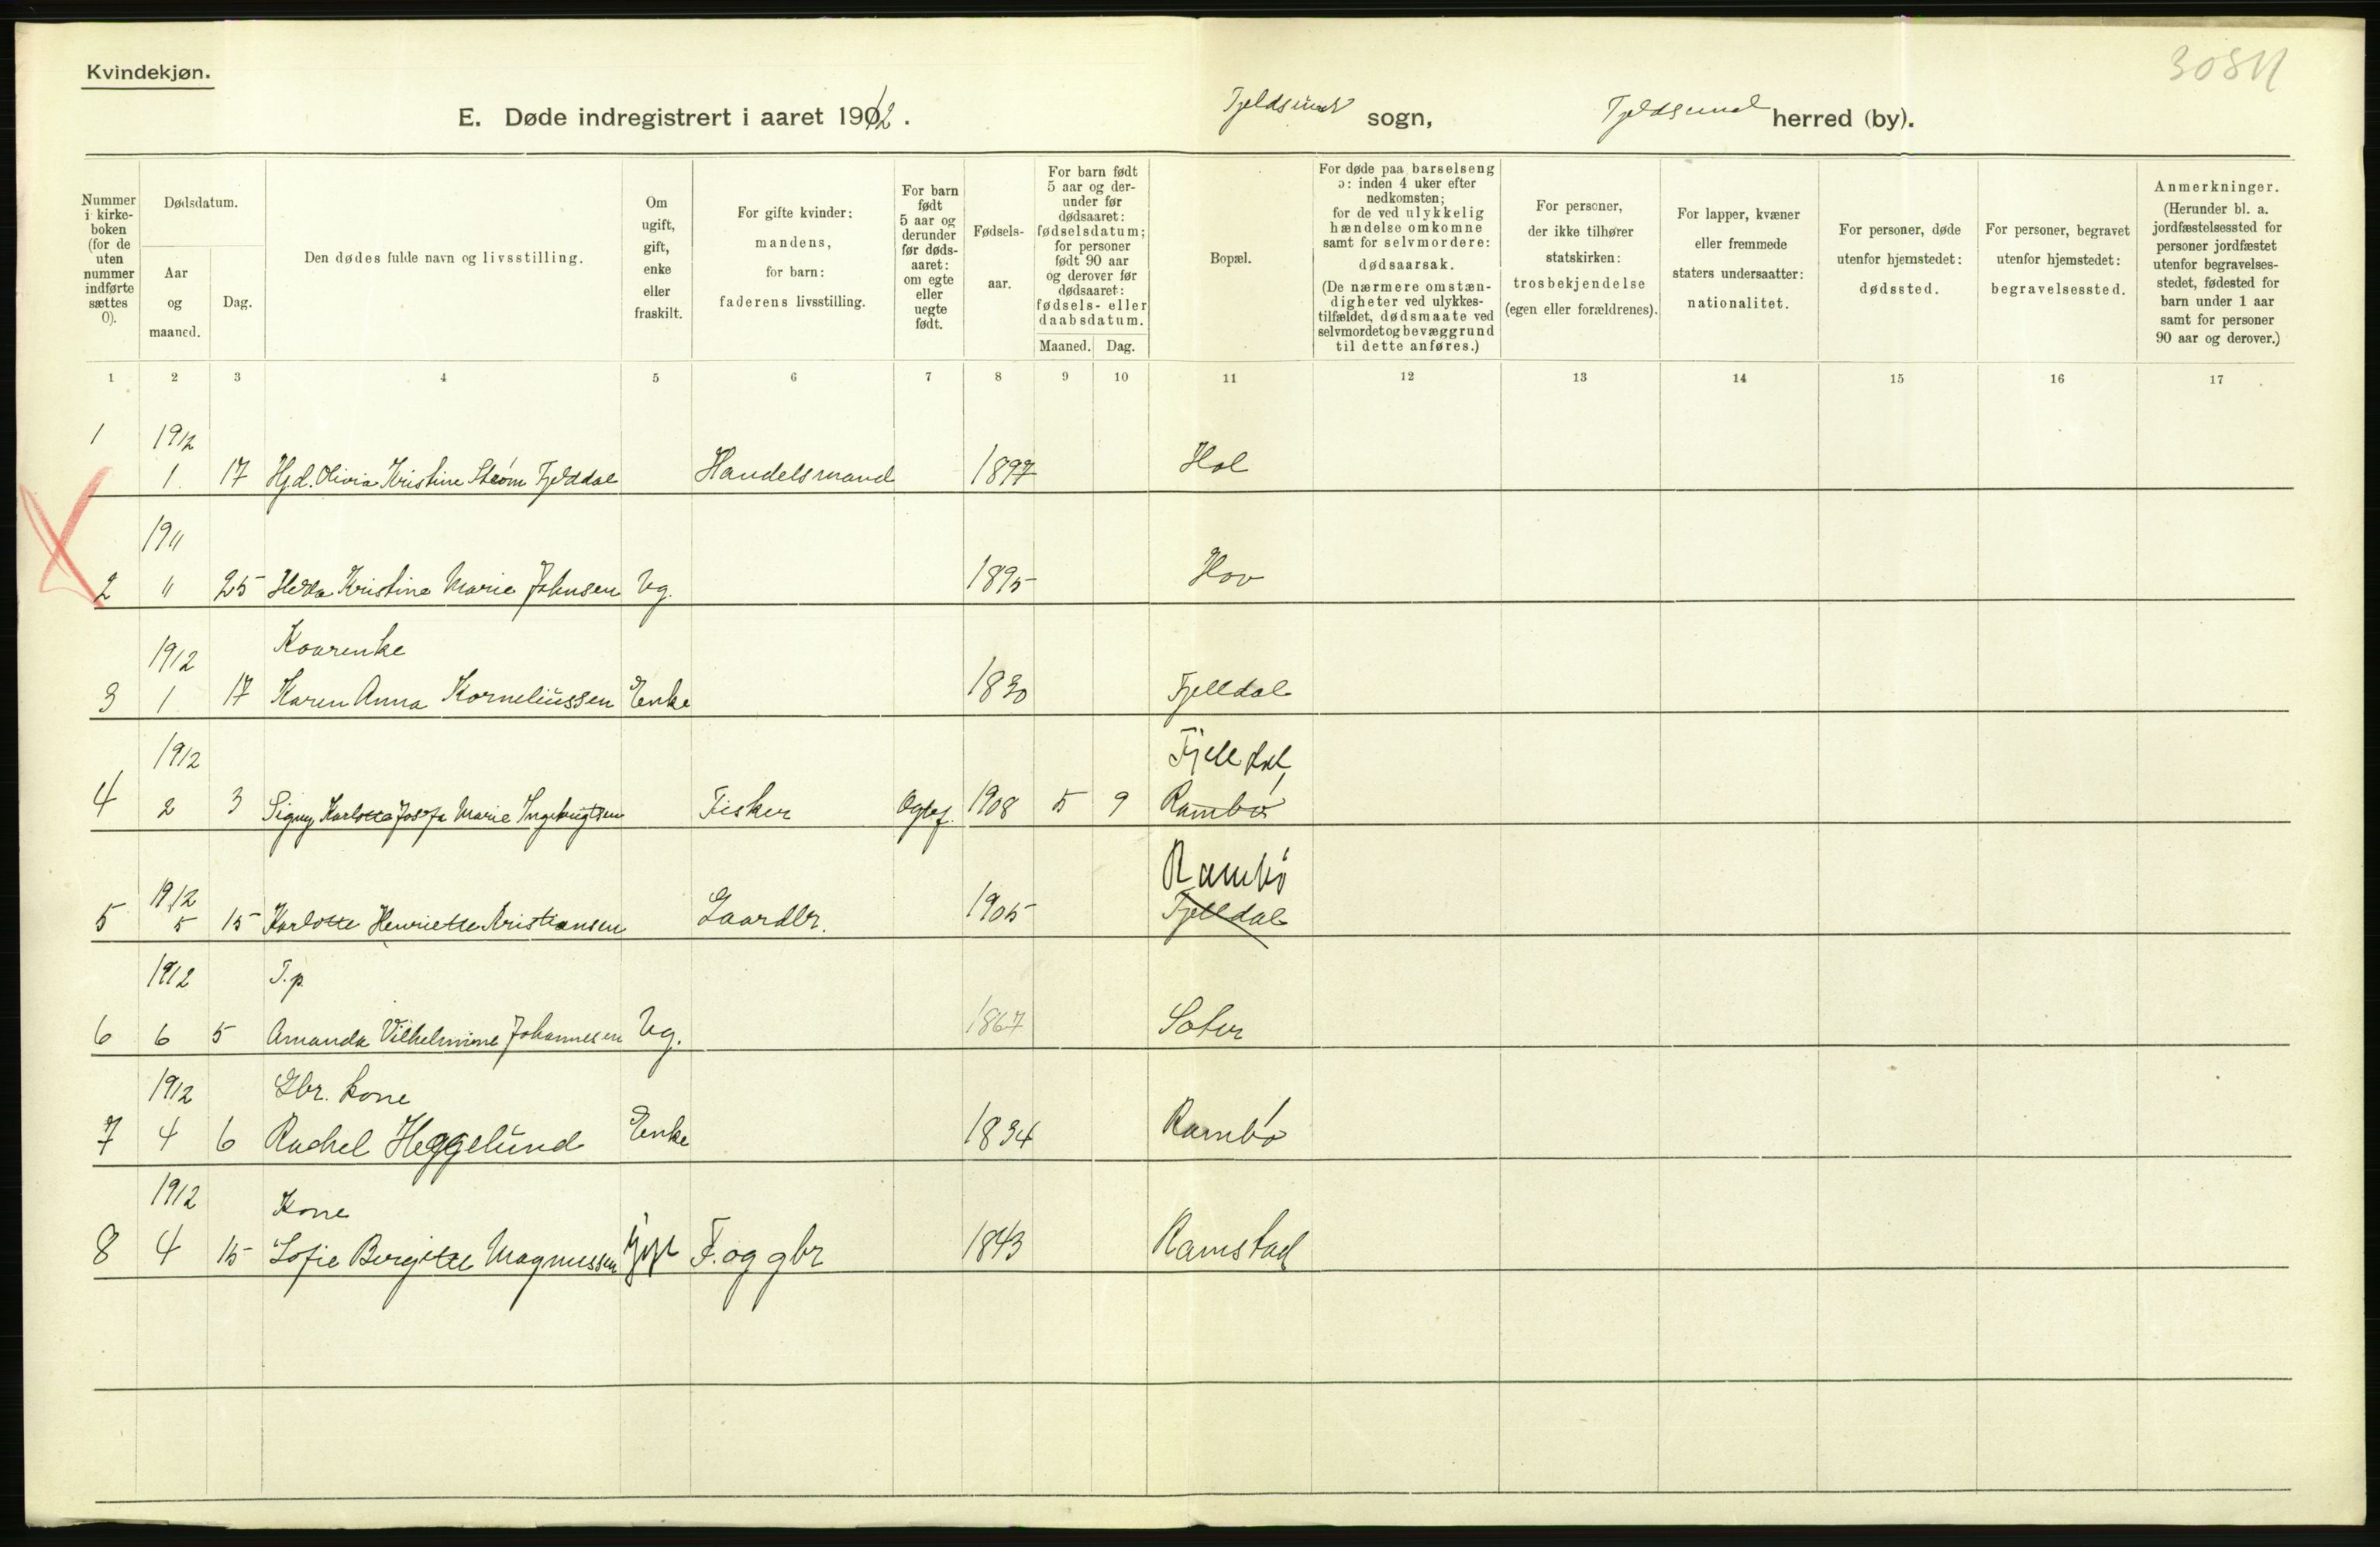 Kvindekjøn.
3081
E. Døde indregistrert i aaret 1912.
Fjeldsund sogn,
Fjeldsund herred (by).
Nummer i kirkeboken (for de uten nummer indførte sættes 0).
Dødsdatum.
Aar og maaned.
Dag.
Den dødes fulde navn og livsstilling.
Om ugift, gift, enke eller fraskilt.
For gifte kvinder: mandens, for barn: faderens livsstilling.
For barn født 5 aar og derunder før dødsaaret: om egte eller uegte født.
Fødselsaar.
For barn født 5 aar og derunder før dødsaaret: fødselsdatum; for personer født 90 aar og derover før dødsaaret: fødsels- eller daabsdatum.
Maaned. Dag.
Bopæl.
For døde paa barselseng ɔ: inden 4 uker efter nedkomsten; for de ved ulykkelig hændelse omkomne samt for selvmordere: dødsaarsak. (De nærmere omstændigheter ved ulykkestilfældet, dødsmaate ved selvmordet og bevæggrund til dette anføres.)
For personer, der ikke tilhører statskirken: trosbekjendelse (egen eller forældrenes).
For lapper, kvæner eller fremmede staters undersaatter: nationalitet.
For personer, døde utenfor hjemstedet: dødssted.
For personer, begravet utenfor hjemstedet: begravelsessted.
Anmerkninger. (Herunder bl. a. jordfæstelsessted for personer jordfæstet utenfor begravelsesstedet, fødested for barn under 1 aar samt for personer 90 aar og derover.)
1 2 3 4 5 6 7 8 9 10 11 12 13 14 15 16 17
1 1912
1. 17 Hjd. Olivia Kristine Strøm Fjelddal Handelsmand 1897 Hol
1911
2 11 25 Helda Kristine Marie Johnsen Ug. 1895 Hov
1912 Kaarenke
3 1 17 Karen Anna Korneliussen Enke 1830 Fjelldal
1912 Fjelldal
4 2 3 Signy Karlotta Josefa Marie Ingebrigtsen Fisker 1908 5 9 Rambø
1912 Rambø
5 5 15 Karlotte Henriette Kristiansen Gaardbr. 1905 Fjelldal
1912 T.p.
6 6 5 Amanda Vilhelmine Johannesen Ug. 1867 Sater
1912 Gbr. kone
7 4 6 Rachel Heggelund Enke 1834 Rambø
1912 Kone
8 4 15 Sofie Bergitte Magnussen gift F. og gbr 1843 Ramstad